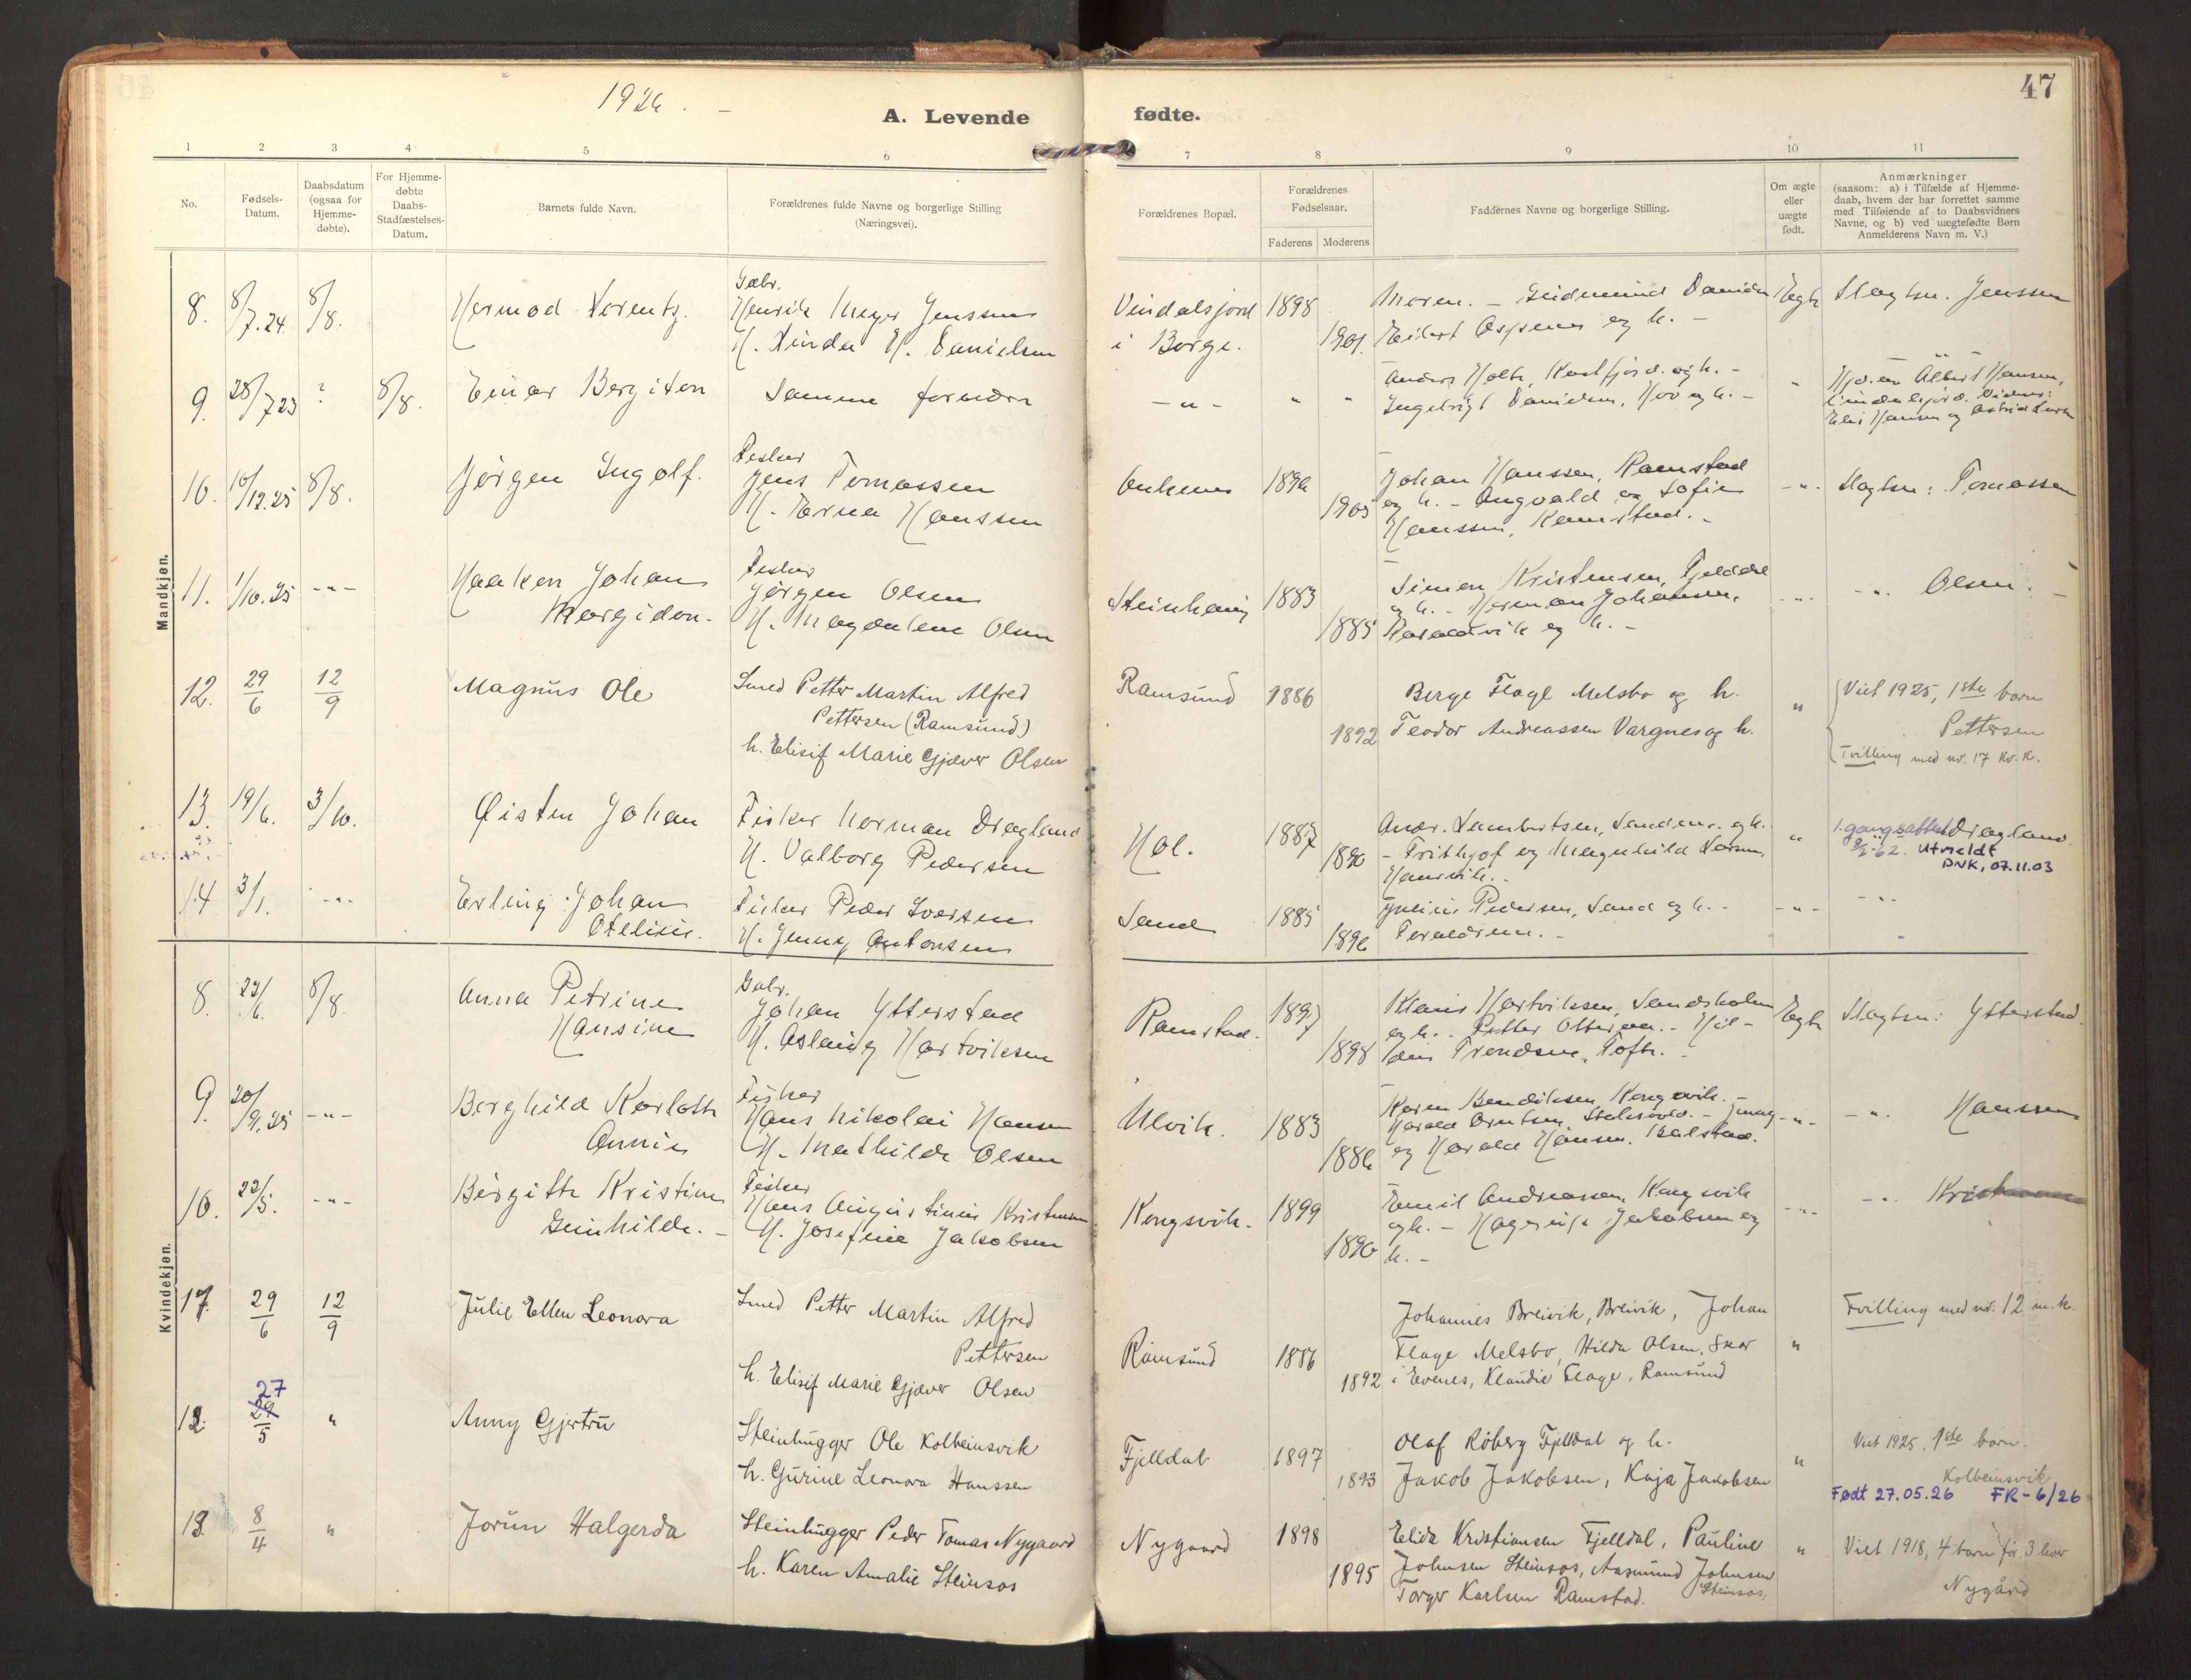 1926. –
A. Levende fødte.
47
1 2 3 4 5 6 7 8 9 10 11
No.
Fødsels-
Datum.
Daabsdatum
(ogsaa for
Hjemme-
døbte).
For Hjemme-
døbte
Daabs-
Stadfæstelses-
Datum.
Barnets fulde Navn.
Forældrenes fulde Navne og borgerlige Stilling
(Næringsvei).
Forældrenes Bopæl.
Forældrenes
Fødselsaar.
Faderens Moderens
Faddernes Navne og borgerlige Stilling.
Om ægte
eller
uægte
født.
Anmærkninger
(saasom: a) i Tilfælde af Hjemme-
daab, hvem der har forrettet samme
med Tilføiende af to Daabsvidners
Navne, og b) ved uægtefødte Børn
Anmelderens Navn m. V.)
Mandkjøn.
8. 8/7.24. 8/8.
Hermod Lorentz.
Henrik Meyer Jenssen
H. Linda H. Danielsen
i Borge.
1898
1901.
Eilert Aspenes og h. –
Slagtsn. Jenssen
9. 28/7 23 ? 8/8.
Einar Bergiton
Samme foreldre
– " –
10. 10/12.25 8/8.
Jørgen Ingolf.
Fisker
Jens Tomassen
H. Erna Hanssen
1905
Johan Hanssen, Ramstad
og h. – Angvald og Sofie
Hanssen, Ramstad. –
Slagtsn: Tomassen
11. 1/10.25 – " –
Haakon Johan
Margidon.
Fisker
Jørgen Olsen
H. Magdalene Olsen
Steinhaug
1883
1885
Simon Kristensen, Fjelddal
og h. – Herman Johansen,
og h. –
– " – Olsen. –
12. 29/6 12/9
Magnus Ole
Smed Petter Martin Alfred
Pettersen (Ramsund)
h. Elisif Marie Gjæver Olsen
Ramsund
1886
1892
Berge Flage Melsbo og h.
Teodor Andreassen Vargnes og h.
"
Viet 1925, 1ste barn
Pettersen
Tvilling med nr. 17 Kv.K.
13. 19/6. 3/10.
Øisten Johan
Fisker Norman Dragland
H. Valborg Pedersen
Hol.
1887
1890
Andr. Lambertsen, Sandnes. og h.
– Frithjof og Magnhild Larsen,
"
Dragland.
Utmeldt
DNK, 07.11.03
14 3/1. – " –
Erling Johan
Otelius.
Fisker Peder Iversen
H. Jenny Antonsen
Sand
1885
1896
Julius Pedersen, Sand og h. –
Foreldrene. –
– " –
Kvindekjøn.
8. 8/8.
Anna Petrine
Hansine
Johan Ytterstad
H. Aslaug Hartviksen
Ramstad.
1897
1898
Klaus Hartviksen, Sandsholm
og h. – Petter Ottesen. – Hal-
dis Trondsen, Tofte. –
Ægte
Slagtsn: Ytterstad.
9. 20/9.25 – " –
Borghild Karlotte
Annie
Fisker
Hans Nikolai Hansen
H. Mathilde Olsen
Ulvik.
1883
1886
Karen Bendiksen, Kongsvik. –
og Harald Hansen, Balstad.
– " – Hanssen
10. 23/5. – " –
Birgitte Kristine
Gunhilde. –
Fisker
Hans Augustinus Kristensen
H. Josefine Jakobsen
Kongsvik.
1899
1890
Emil Andreassen, Kongsvik
og h. – Jakobsen og
h. –
17. 29/6 12/9
Julie Ellen Leonora
Smed Petter Martin Alfred
Pettersen
h. Elisif Marie Gjæver Olsen
Ramsund
1886
1892
Johannes Breivik, Breivik, Johan
Flage Melsbo, Hilda Olsen, Skar
i Evenes, Klaudie Flage, Ramsund
"
Tvilling med nr. 12 m.k.
12. 27 29/5 "
Anny Gjertru
Steinhugger Ole Kolbeinsvik
h. Gurine Leonora Hanssen
Fjelldal
1897
1893
Olaf Røberg Fjelldal og h.
Jakob Jakobsen, Kaja Jakobsen
"
Viet 1925, 1ste barn.
Kolbeinsvik
Født 27.05.26 FR-6/26
13. 8/4 "
Jorun Halgerda
Steinhugger Peder Tomas Nygaard
h. Karen Amalie Steinsos
Nygaard
1898
1895
Elida Kristiansen Fjelldal, Pauline
Johnsen Steinsos, Aasmund Johnsen
Steinsos,
Torger Karlsen Ramstad.
"
Viet 1918, 4 barn før 3 lever
Nygård